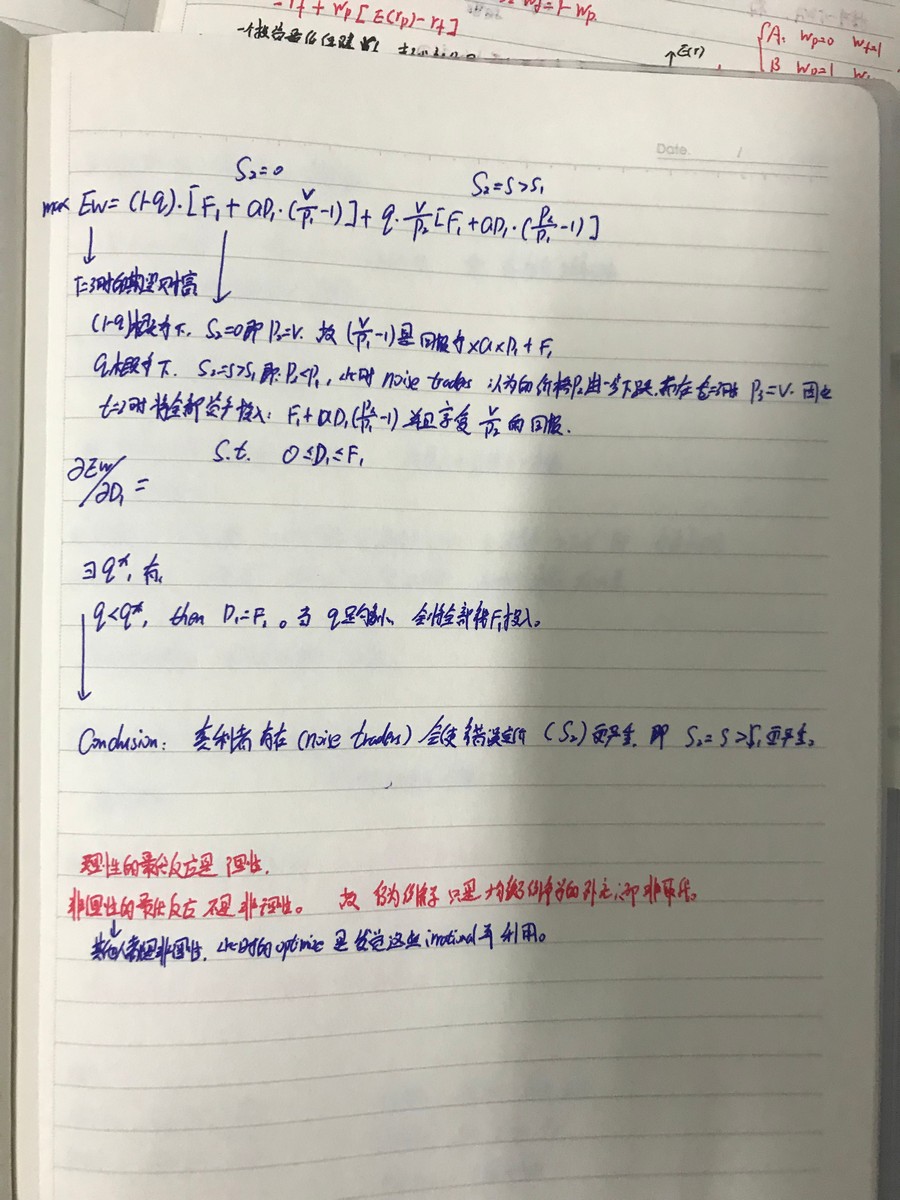 = rf + wp [E(rp) - rf]
wf = 1 - wp.
↑E(r)
A: wp=0 wf=1
B wp=1
Date. /
S₂=0
S₂=S>S₁
max Ew = (1-q)·[F₁ + aD₁·(V/P₁ -1)] + q·V/P₂[F₁+aD₁·(P₂/P₁ -1)]
T=3时的期望财富
(1-q)概率下. S₂=0即P₂=V. 故 (V/P₁ -1) 是回报率×a×D₁+F₁
q概率下. S₂=S>S₁即P₂<P₁, 此时 noise traders 认为的价格P₂进一步下跌.而在t=3时 P₃=V. 因此
t=2时将全部资产投入: F₁+aD₁(P₂/P₁ -1) 并且享受 V/P₂ 的回报.
S.t. 0≤D₁≤F₁
∂Ew/∂D₁ =
∃q*, 有,
q<q*, then D₁=F₁。当q足够小, 会将全部将F₁投入。
Conclusion: 套利者存在 (noise traders) 会使错误定价 (S₂) 更严重, 即 S₂=S>S₁更严重。
理性的最优反应是理性,
非理性的最优反应不是非理性。 故 行为经济学只是均衡经济学的补充,而非取代。
其他人都是非理性, 此时的optimize 是发觉这些irrational并利用。